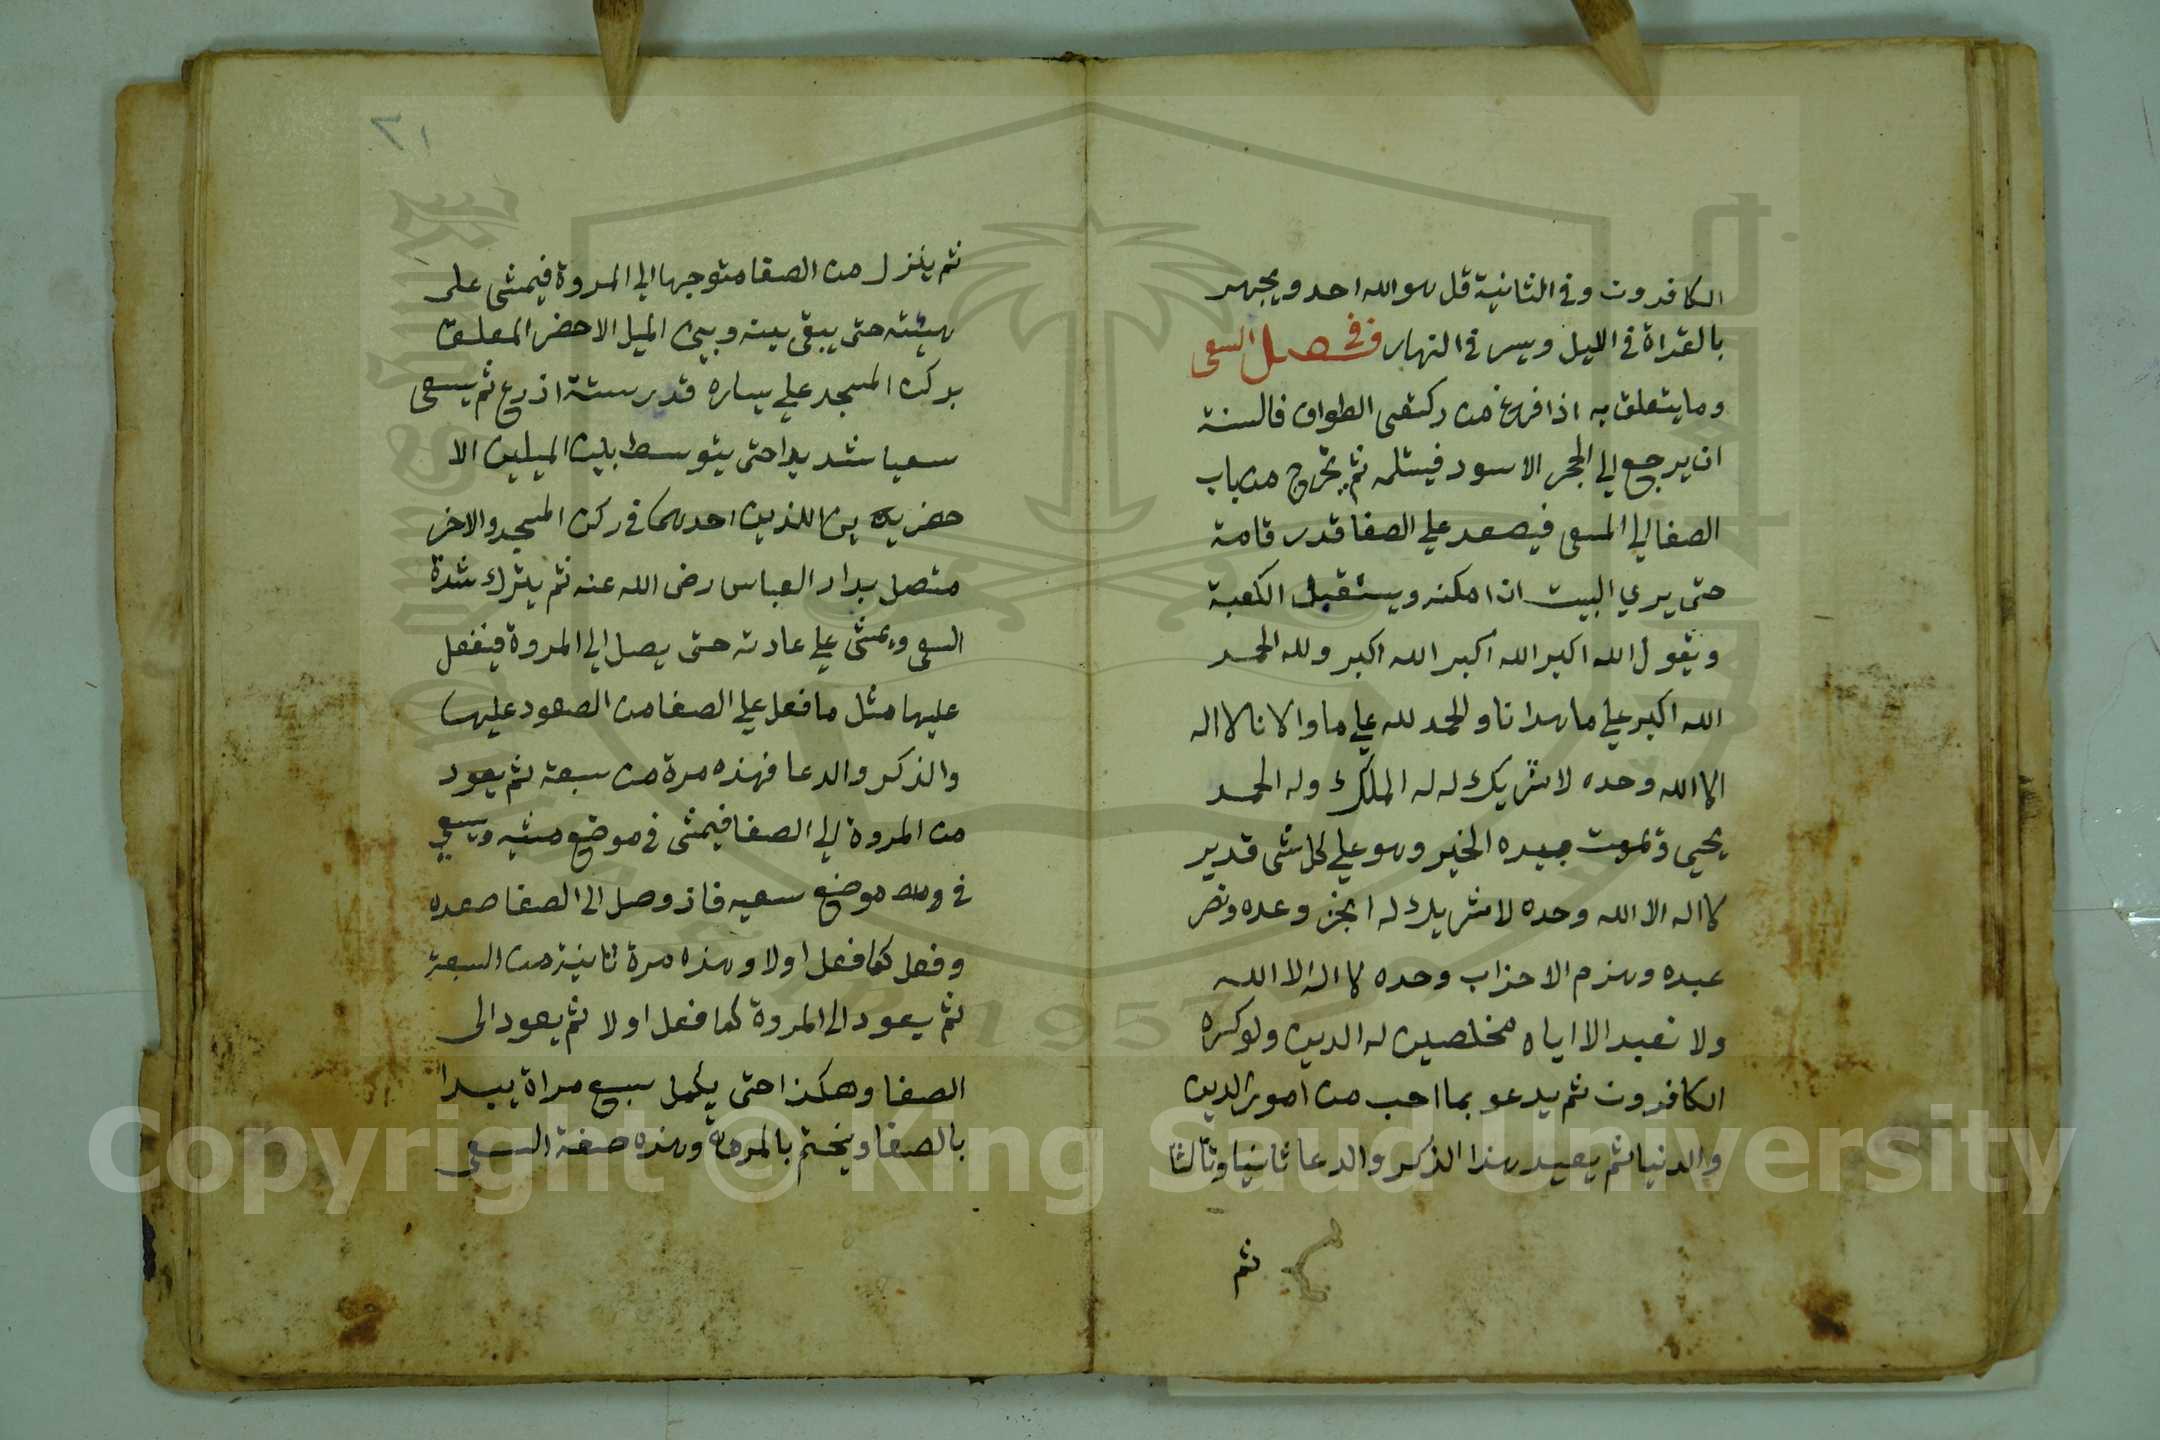 الكافرون وفي الثانية قل هو الله احد ويجهر
بالقراة في الليل ويسر في النهار فصل في السعي
وما يتعلق به اذا فرغ من ركعتي الطواف فالسنة
ان يرجع الي الحجر الاسود فيستلمه ثم يخرج من باب
الصفا الي المسعي فيصعد علي الصفا قدر قامة
حتى يري البيت ان امكنه ويستقبل الكعبة
ويقول الله اكبر الله اكبر الله اكبر ولله الحمد
الله اكبر علي ما هدانا والحمد لله علي ما والانا لا اله
الا الله وحده لا شريك له له الملك وله الحمد
يحيي ويموت بيده الخير وهو علي كل شي قدير
لا اله الا الله وحده لا شريك له انجز وعده ونصر
عبده وهزم الاحزاب وحده لا اله الا الله
ولا نعبد الا اياه مخلصين له الدين ولو كره
الكافرون ثم يدعو بما احب من امور الدين
والدنيا ثم يعيد هذا الذكر والدعا ثانيا وثالثا
ثم
٢١
ثم ينزل من الصفا متوجها الي المروة فيمشي على
هيئته حتى يبقى بينه وبين الميل الاخضر المعلق
بركن المسجد علي يساره قدر ستة اذرع ثم يسعى
سعيا شديدا حتى يتوسط بين الميلين الا
خضرين اللذين احدهما في ركن المسجد والاخر
متصل بدار العباس رضى الله عنه ثم يترك شدة
السعي ويمشى علي عادته حتى يصل الي المروة فيفعل
عليها مثل ما فعل علي الصفا من الصعود عليها
والذكر والدعا فهذه مرة من سبعة ثم يعود
من المروة الي الصفا فيمشى في موضع مشيه ويسعي
في موضع سعيه فاذ وصل الى الصفا صعده
وفعل كما فعل اولا وهذه مرة ثانية من السبعة
ثم يعود الى المروة كما فعل اولا ثم يعود الى
الصفا وهكذا حتى يكمل سبع مراة يبدا
بالصفا ويختم بالمروة وهذه صفة السعى
Copyright © King Saud University
1957